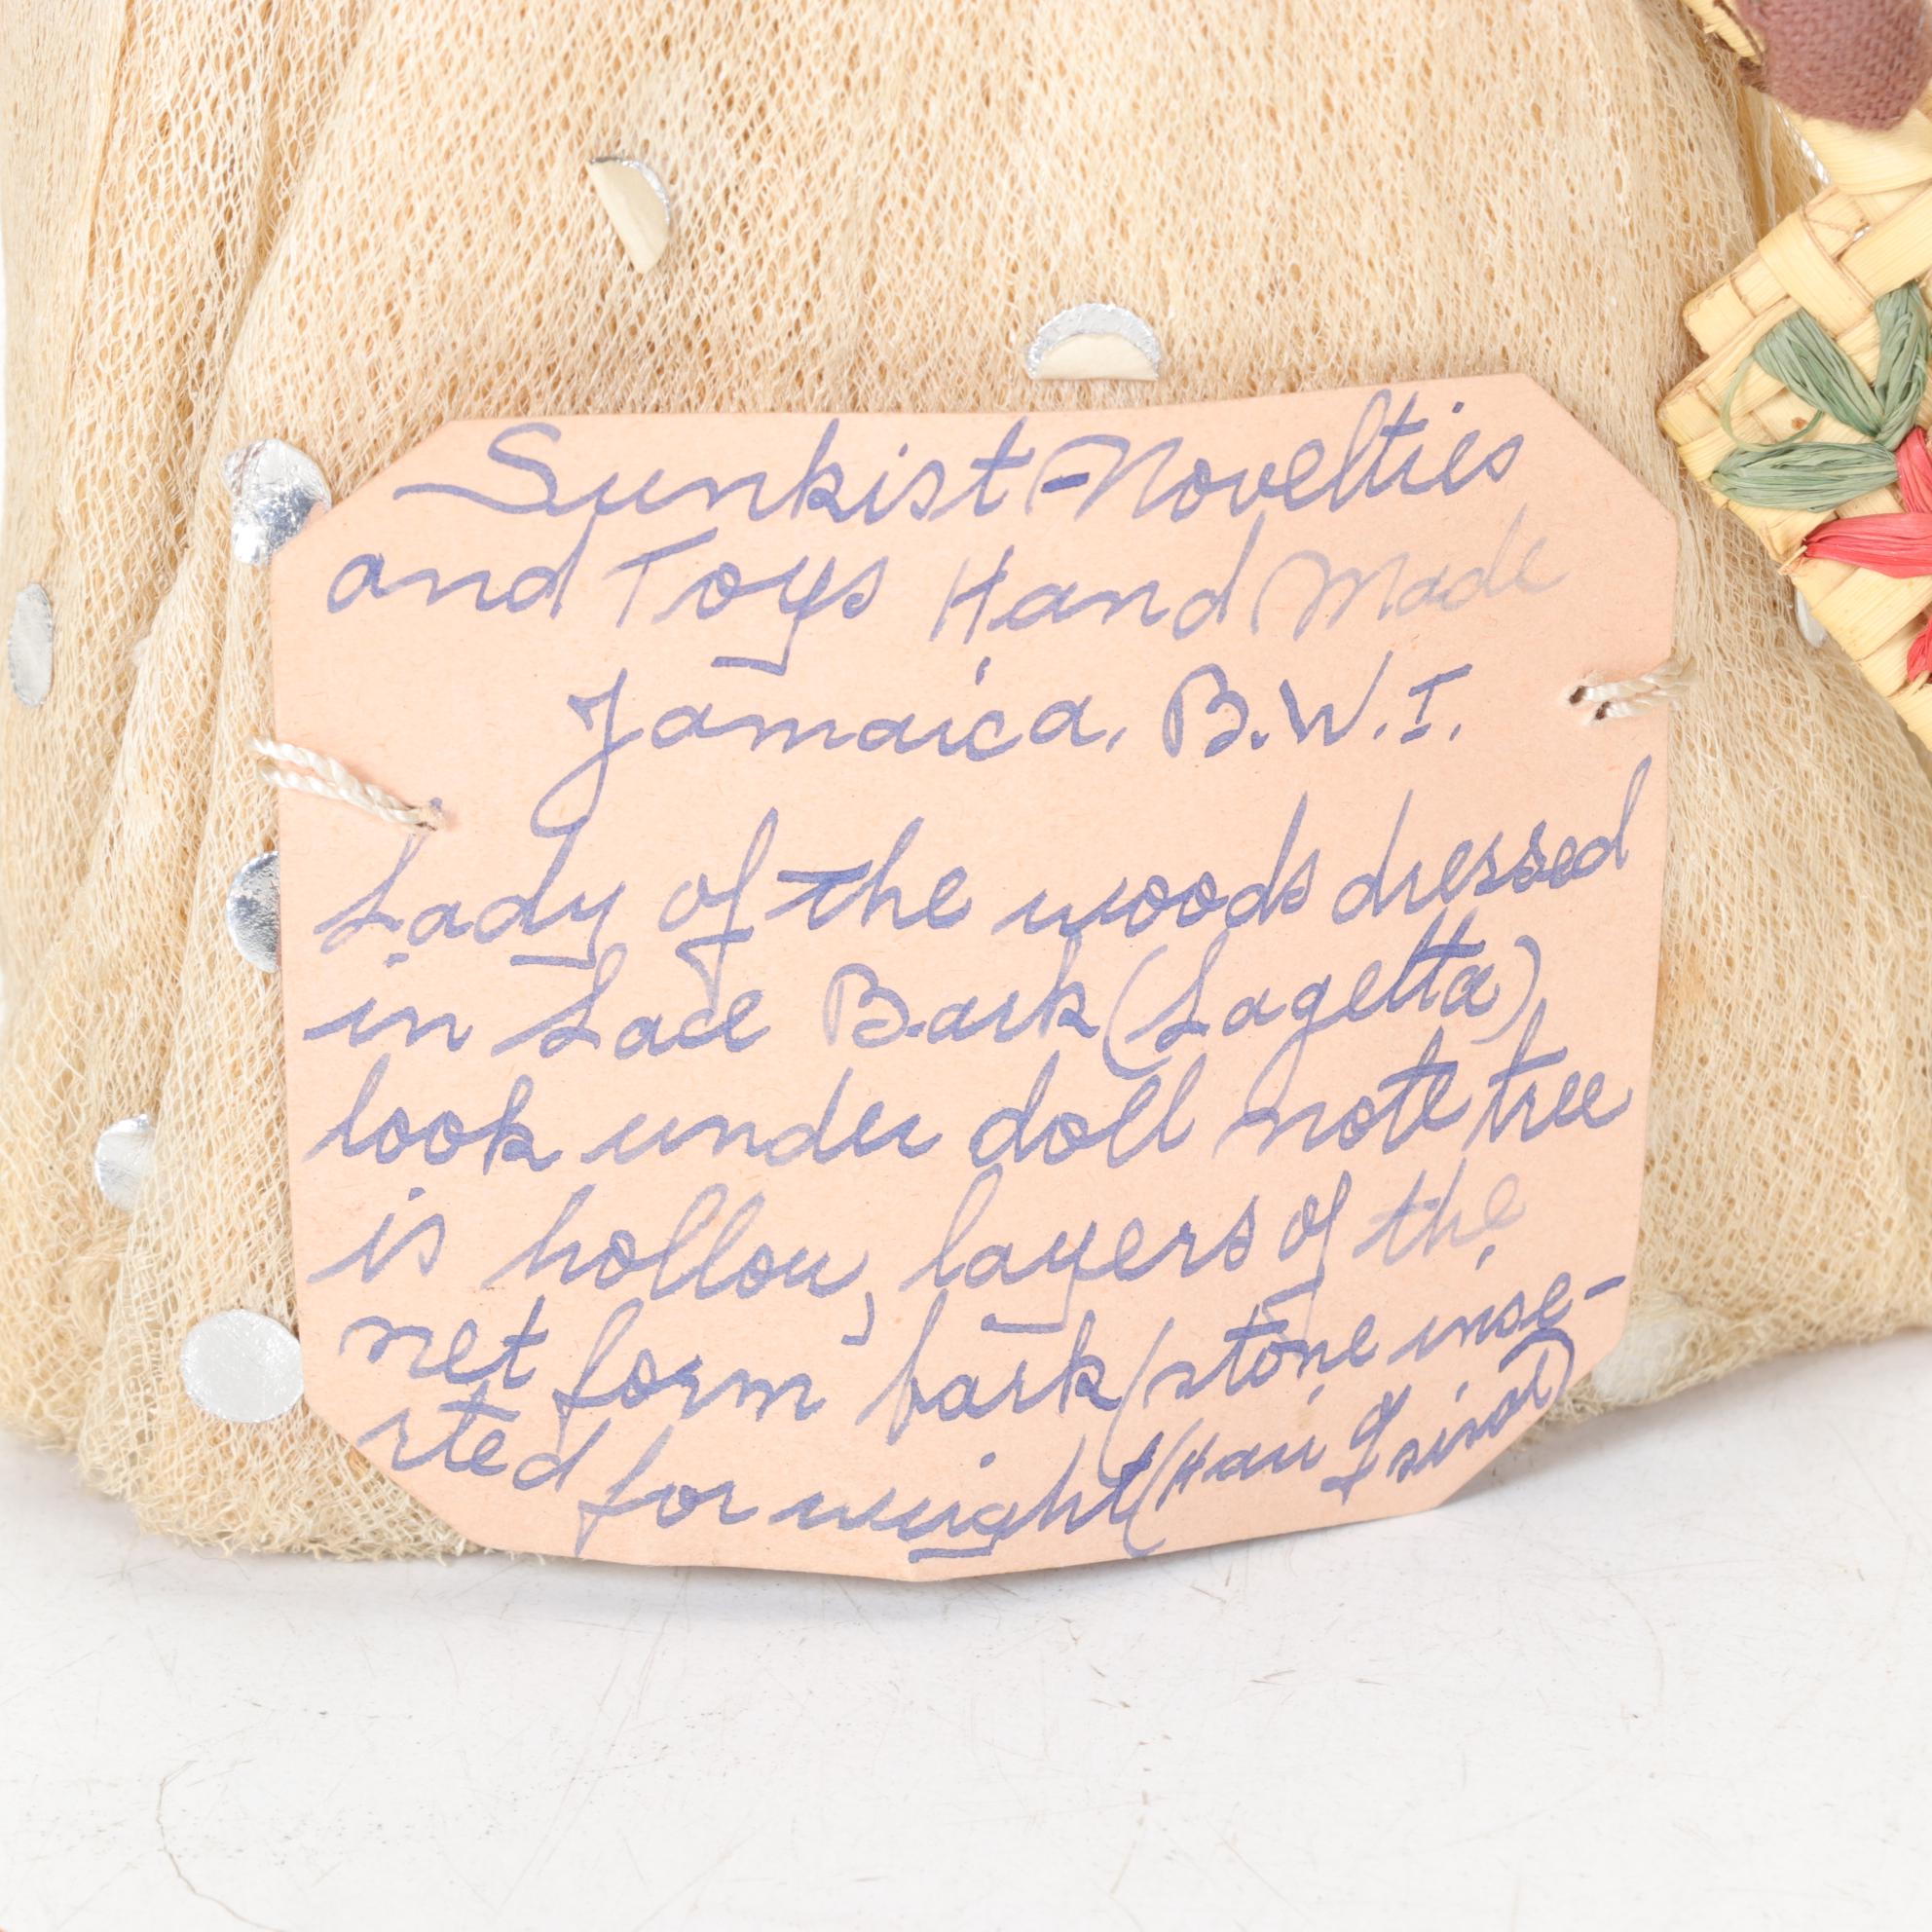 Sunkist-Novelties
and Toys Hand Made
Jamaica, B.W.I.
Lady of the woods dressed
in Lace Bark (Lagetta)
look under doll note tree
is hollow, layers of the
net form bark (stone inse-
rted for weight (Hair of sisal)